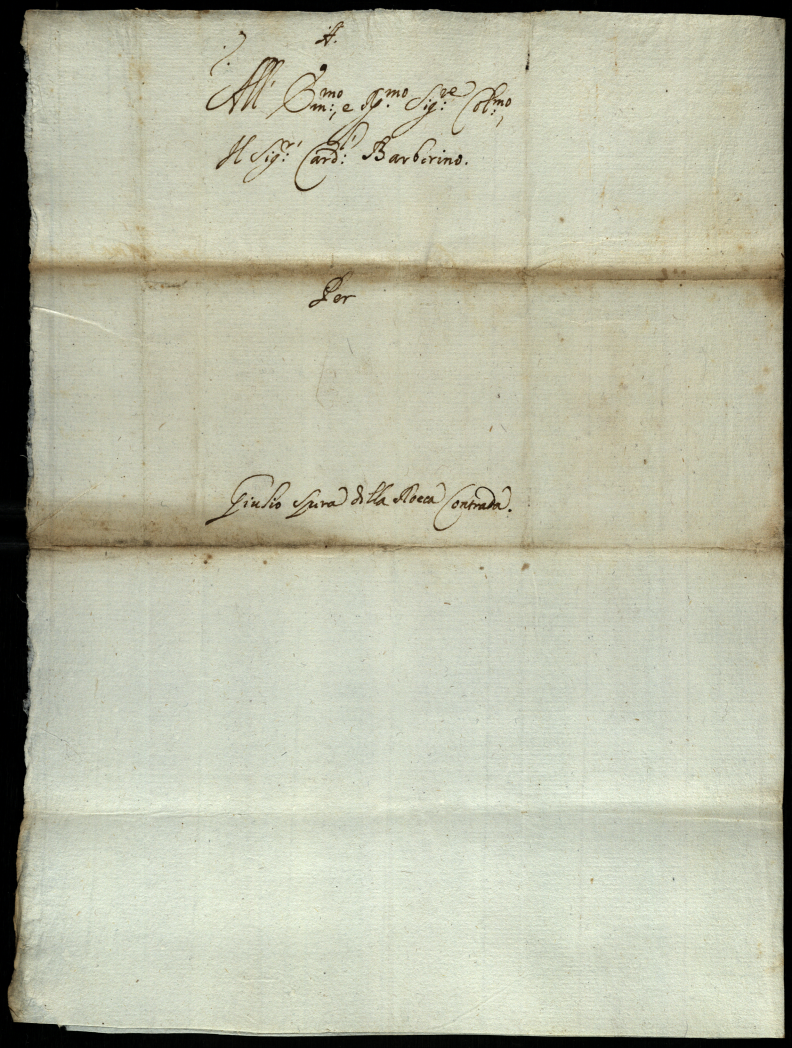 A.
All' Em:mo, e R:mo Sig:re Col:mo,
Il Sig:r Card:l Barberino.
Per
Giulio Spura della Rocca Contrada.